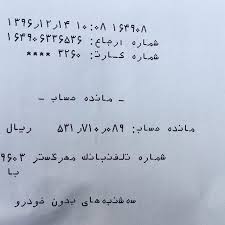 ۱۳۹۶/۱۲/۱۴ ۱۰:۰۸ ۱۶۴۹۰۸
شماره ارجاع: ۱۶۴۹۰۶۳۳۶۵۳۶
شماره کارت: ۳۲۶۰ ****
- مانده حساب -
مانده حساب: ۵۳۱/۷۱۰/۰۸۹ ریال
شماره تلفنبانک مهرگستر ۹۶۰۳
با
سه‌شنبه‌های بدون خودرو